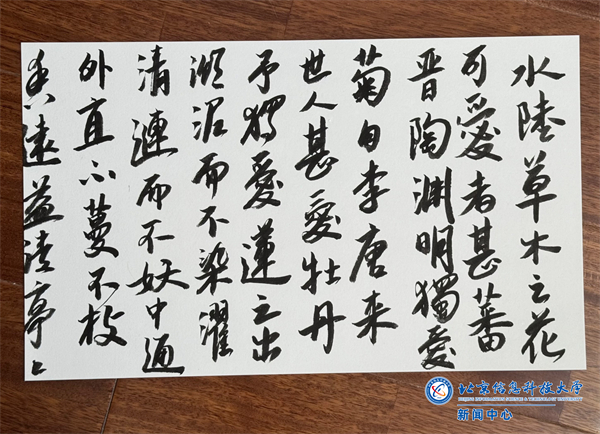 水陸草木之花
可愛者甚蕃
晋陶渊明獨愛
菊自李唐来
世人甚愛牡丹
予獨愛蓮之出
淤泥而不染濯
清漣而不妖中通
外直不蔓不枝
香遠益清亭々
北京信息科技大学
BEIJING INFORMATION SCIENCE & TECHNOLOGY UNIVERSITY
新闻中心